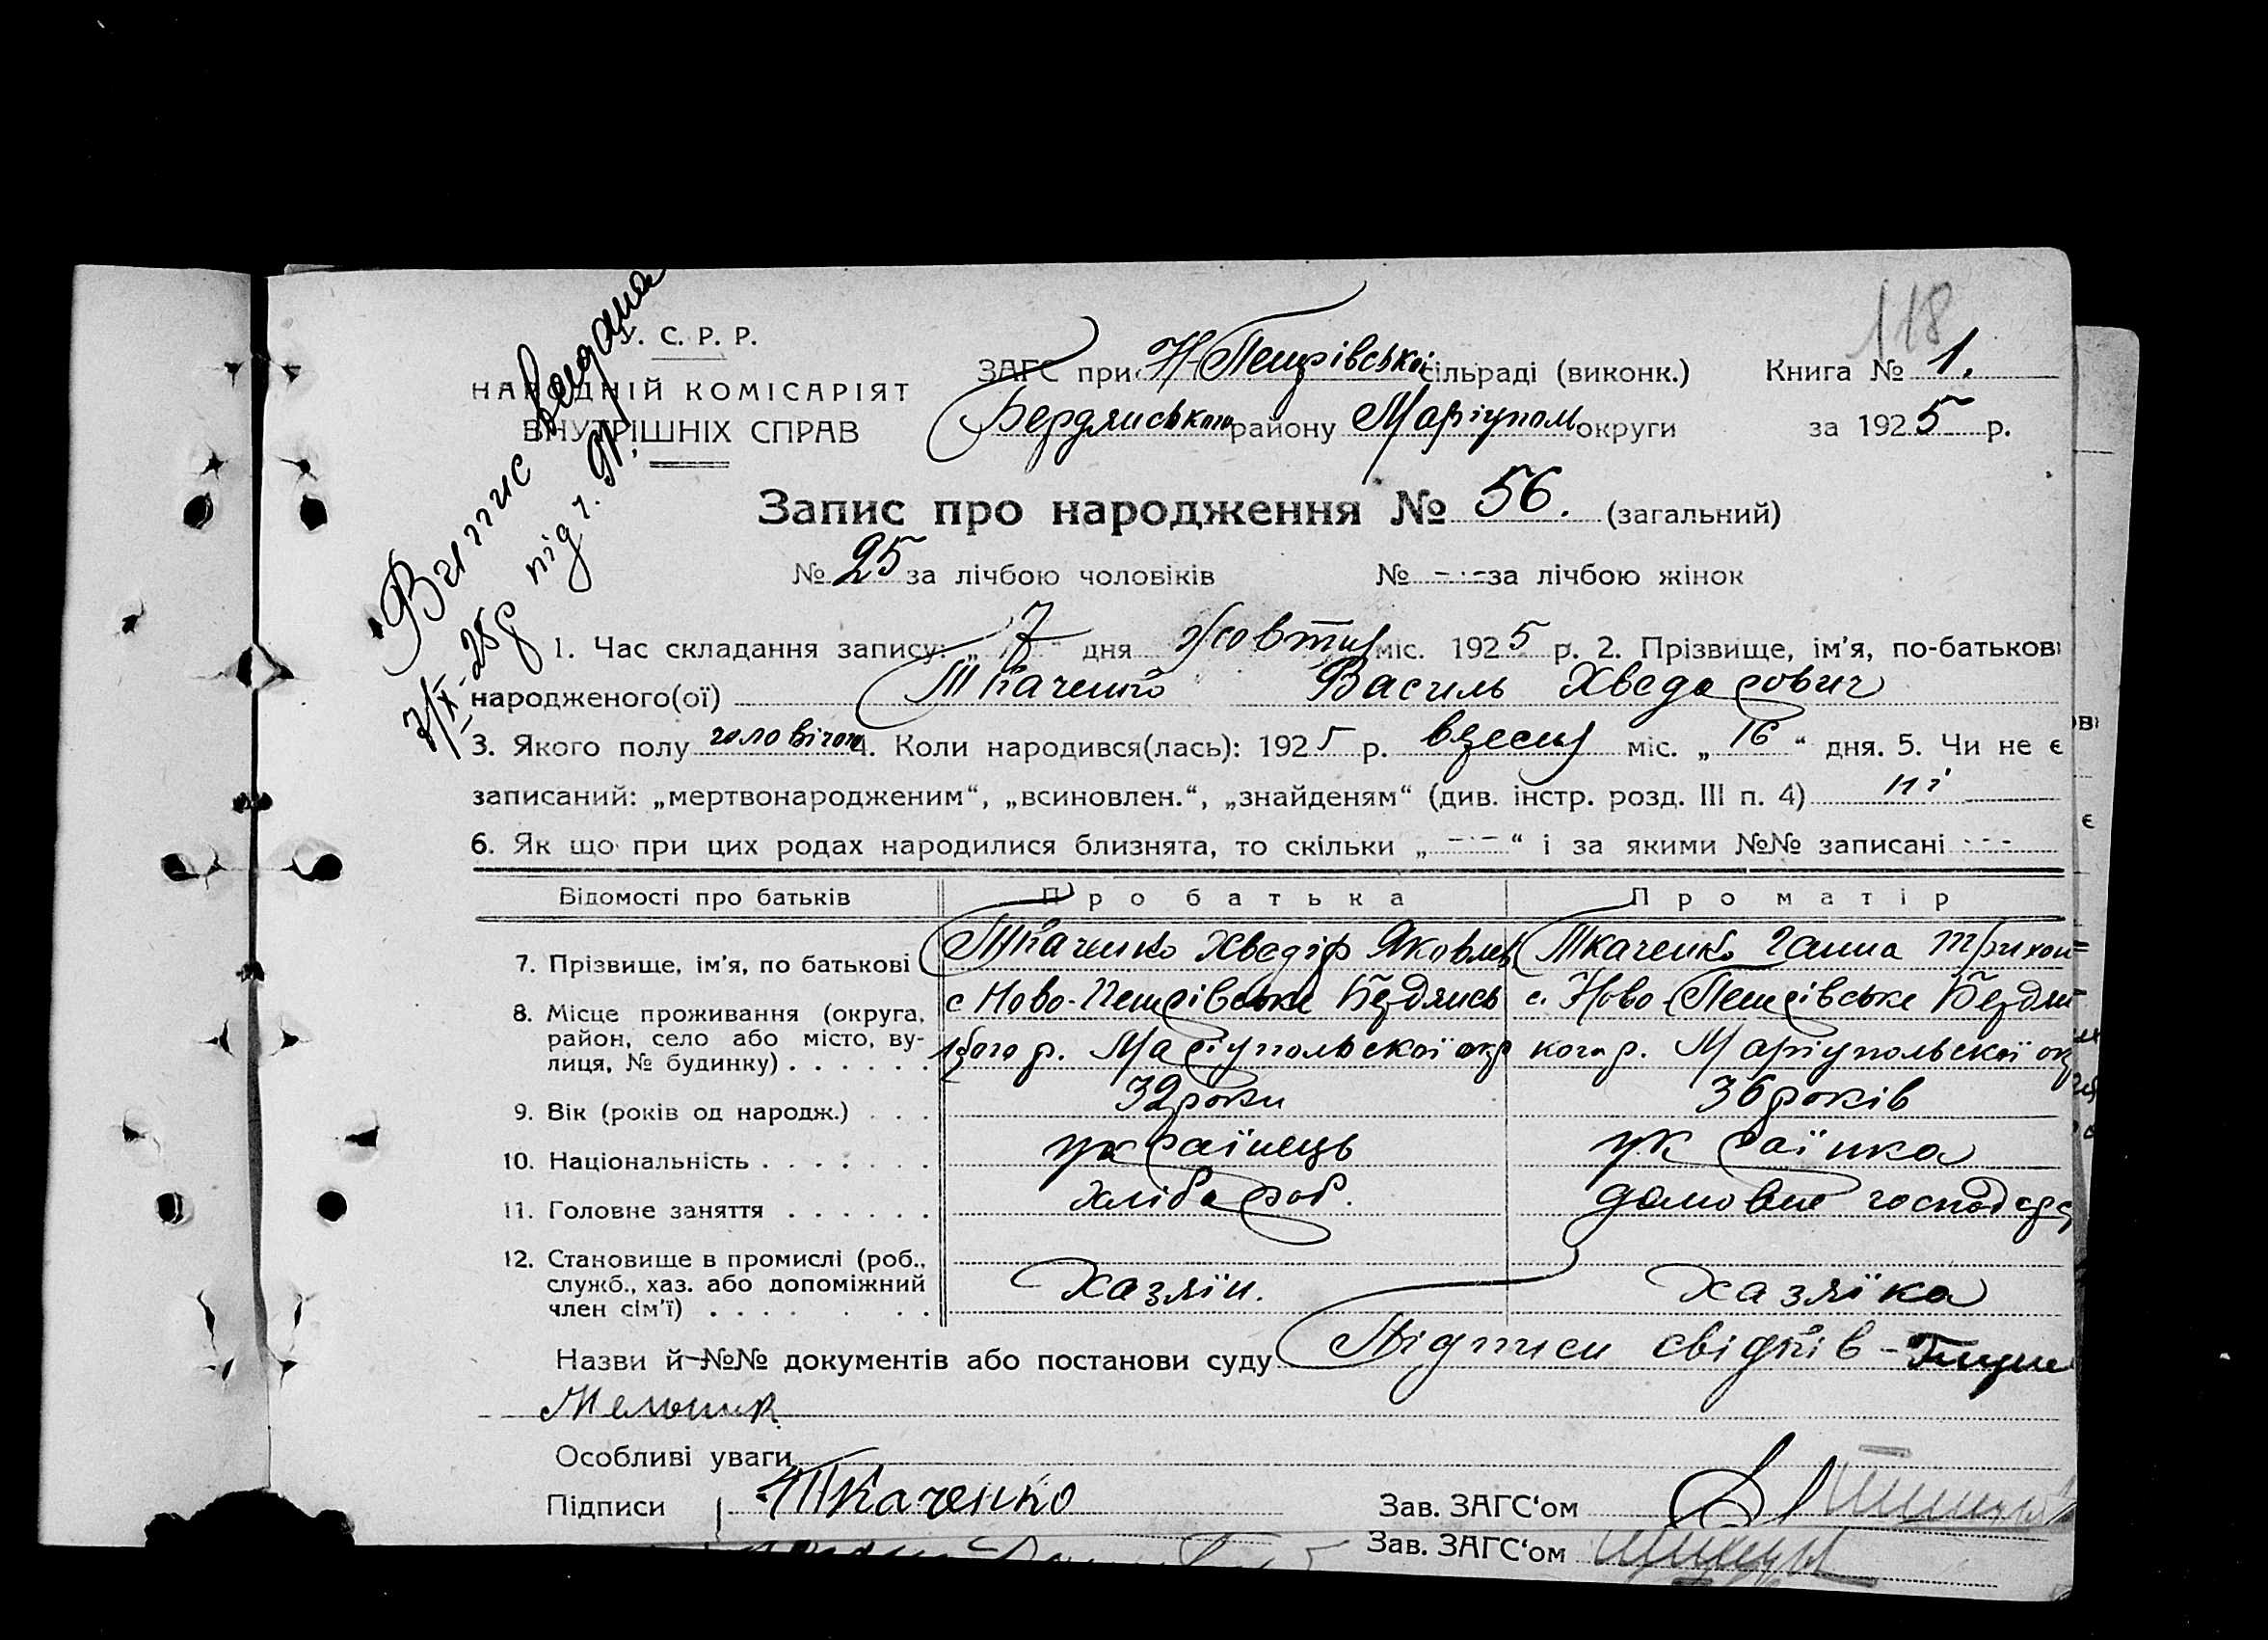 118
У. С. Р. Р.
НАРОДНІЙ КОМІСАРІЯТ
ВНУТРІШНІХ СПРАВ
Витис видана
7/X-25 р під ч. 91
ЗАГС при Н-Петрівській сільраді (виконк.) Книга № 1.
Бердянського району Маріупол округи за 1925 р.
Запис про народження № 56. (загальний)
№ 25 за лічбою чоловіків № - · - за лічбою жінок
1. Час складання запису: „7“ дня жовтня міс. 1925 р. 2. Прізвище, ім'я, по-батькові
народженого(ої) Ткаченко Василь Хведорович
3. Якого полу чоловічого 4. Коли народився(лась): 1925 р. вересня міс. „16“ дня. 5. Чи не є
записаний: „мертвонародженим“, „всиновлен.“, „знайденям“ (див. інстр. розд. III п. 4) ні
6. Як що при цих родах народилися близнята, то скільки „- · -“ і за якими №№ записані - · -
Відомості про батьків Про батька Про матір
7. Прізвище, ім'я, по батькові Ткаченко Хведір Яковлев Ткаченко Ганна Трихон=
8. Місце проживання (округа, с Ново-Петрівське Бердянсь с. Ново-Петрівське Бердян
район, село або місто, ву-
лиця, № будинку) . . . . . . кого р. Маріупольської окр кого р. Маріупольскої ок
9. Вік (років од народж.) . . . 32 роки 36 років
10. Національність . . . . . . . українець українка
11. Головне заняття . . . . . . хлібороб. домовне господар
12. Становище в промислі (роб.,
служб., хаз. або допоміжний
член сім'ї) . . . . . . . Хазяїн. Хазяїка
Назви й №№ документів або постанови суду Підписи свідків -
Мельник
Особливі уваги
Підписи Ткаченко Зав. ЗАГС'ом
Зав. ЗАГС'ом